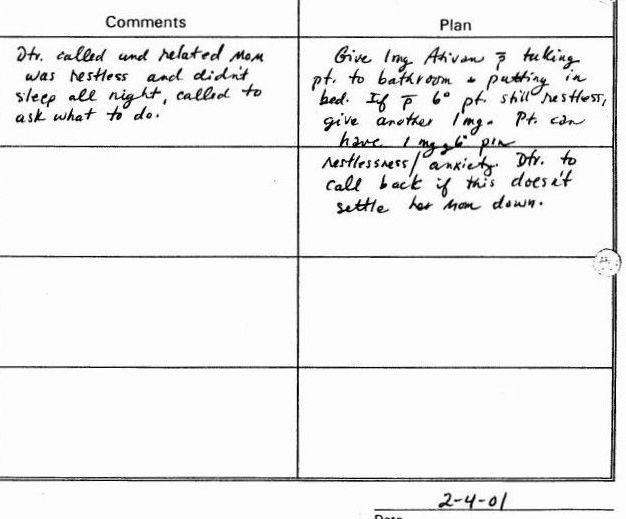 Comments
Plan
Dtr. called and related Mom
was restless and didn't
sleep all night, called to
ask what to do.
Give 1mg Ativan p̄ taking
pt. to bathroom & putting in
bed. If p̄ 6° pt. still restless,
give another 1mg. Pt. can
have 1 mg q6° prn
restlessness/anxiety. Dtr. to
call back if this doesn't
settle her Mom down.
2-4-01
Date